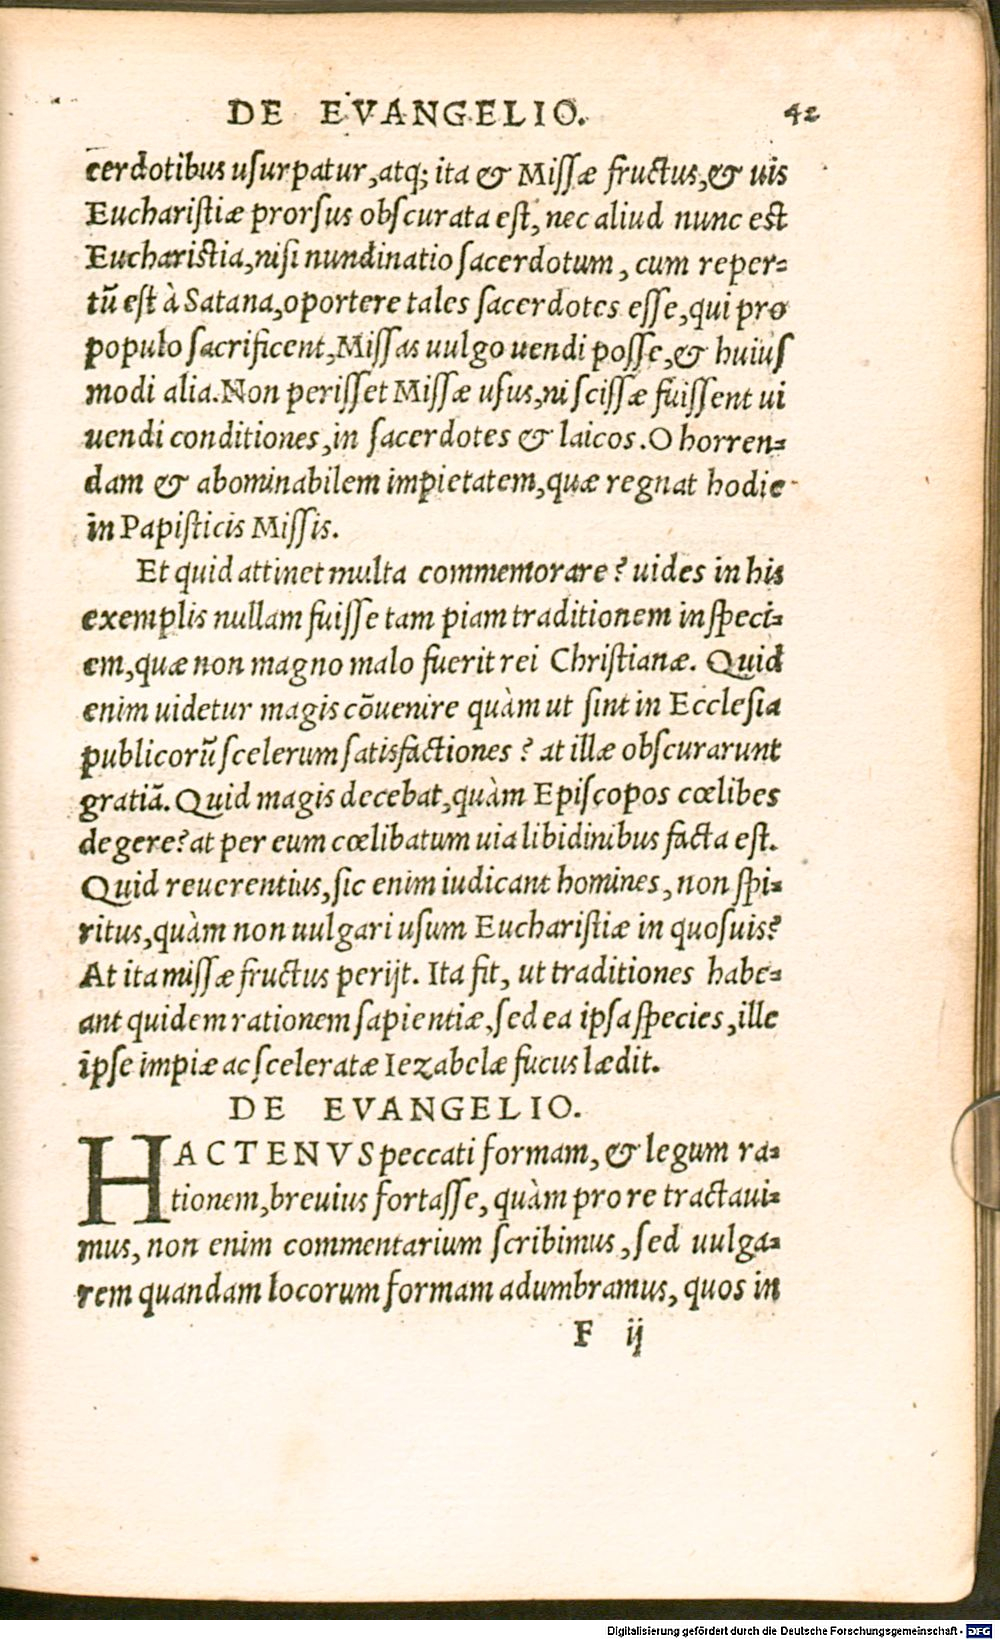 DE EVANGELIO. 42
cerdotibus usurpatur, atq; ita & Missæ fructus, & uis
Eucharistiæ prorsus obscurata est, nec aliud nunc est
Eucharistia, nisi nundinatio sacerdotum, cum reper-
tū est à Satana, oportere tales sacerdotes esse, qui pro
populo sacrificent, Missas uulgo uendi posse, & huius
modi alia. Non perisset Missæ usus, ni scissæ fuissent ui
uendi conditiones, in sacerdotes & laicos. O horren-
dam & abominabilem impietatem, quæ regnat hodie
in Papisticis Missis.
Et quid attinet multa commemorare? uides in his
exemplis nullam fuisse tam piam traditionem in speci-
em, quæ non magno malo fuerit rei Christianæ. Quid
enim uidetur magis cōuenire quàm ut sint in Ecclesia
publicorū scelerum satisfactiones? at illæ obscurarunt
gratiā. Quid magis decebat, quàm Episcopos cœlibes
degere? at per eum cœlibatum uia libidinibus facta est.
Quid reuerentius, sic enim iudicant homines, non spi-
ritus, quàm non uulgari usum Eucharistiæ in quosuis?
At ita missæ fructus perijt. Ita fit, ut traditiones habe-
ant quidem rationem sapientiæ, sed ea ipsa species, ille
ipse impiæ ac sceleratæ Iezabelæ fucus lædit.
DE EVANGELIO.
HACTENVS peccati formam, & legum ra-
tionem, breuius fortasse, quàm pro re tractaui-
mus, non enim commentarium scribimus, sed uulga-
rem quandam locorum formam adumbramus, quos in
F ij
Digitalisierung gefördert durch die Deutsche Forschungsgemeinschaft - DFG